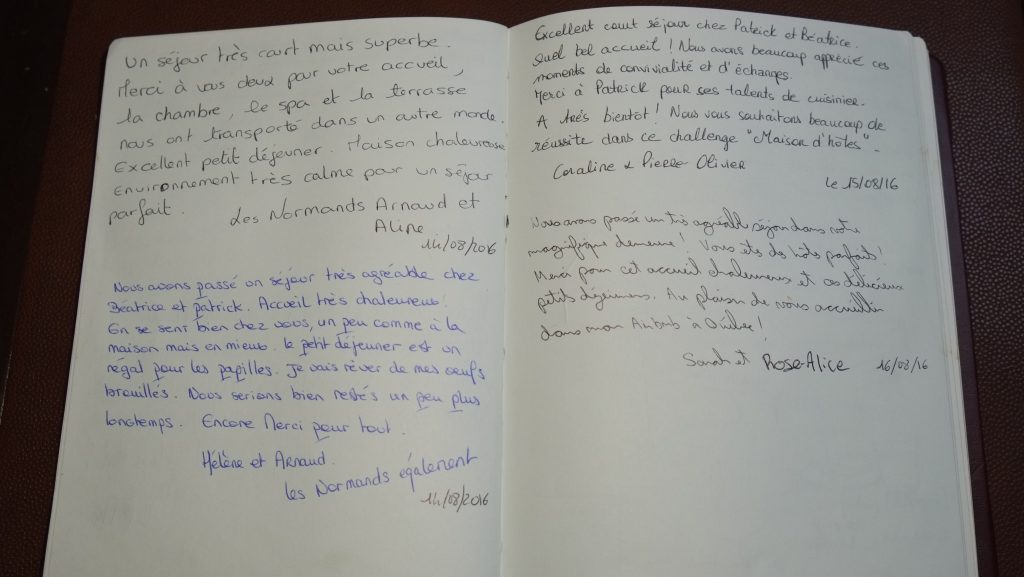 Un séjour très court mais superbe.
Merci à vous deux pour votre accueil,
la chambre, le spa et la terrasse
nous ont transporté dans un autre monde.
Excellent petit déjeuner. Maison chaleureuse
Environnement très calme pour un séjour
parfait.
Les Normands Arnaud et
Aline
14/08/2016
Nous avons passé un séjour très agréable chez
Béatrice et Patrick. Accueil très chaleureux.
On se sent bien chez vous, un peu comme à la
maison mais en mieux. Le petit déjeuner est un
régal pour les papilles. Je vais rêver de mes oeufs
brouillés. Nous serions bien restés un peu plus
longtemps. Encore Merci pour tout.
Hélène et Arnaud.
les Normands également
14/08/2016
Excellent court séjour chez Patrick et Béatrice.
Quel bel accueil ! Nous avons beaucoup apprécié ces
moments de convivialité et d'échanges.
Merci à Patrick pour ses talents de cuisinier.
A très bientot ! Nous vous souhaitons beaucoup de
réussite dans ce challenge "Maison d'hôtes".
Coraline & Pierre Olivier
Le 15/08/16
Nous avons passé un très agréable séjour dans votre
magnifique demeure ! Vous êtes des hôtes parfaits !
Merci pour cet accueil chaleureux et ces délicieux
petits déjeuners. Au plaisir de vous accueillir
dans mon Airbnb à Québec !
Sarah et Rose-Alice 16/08/16